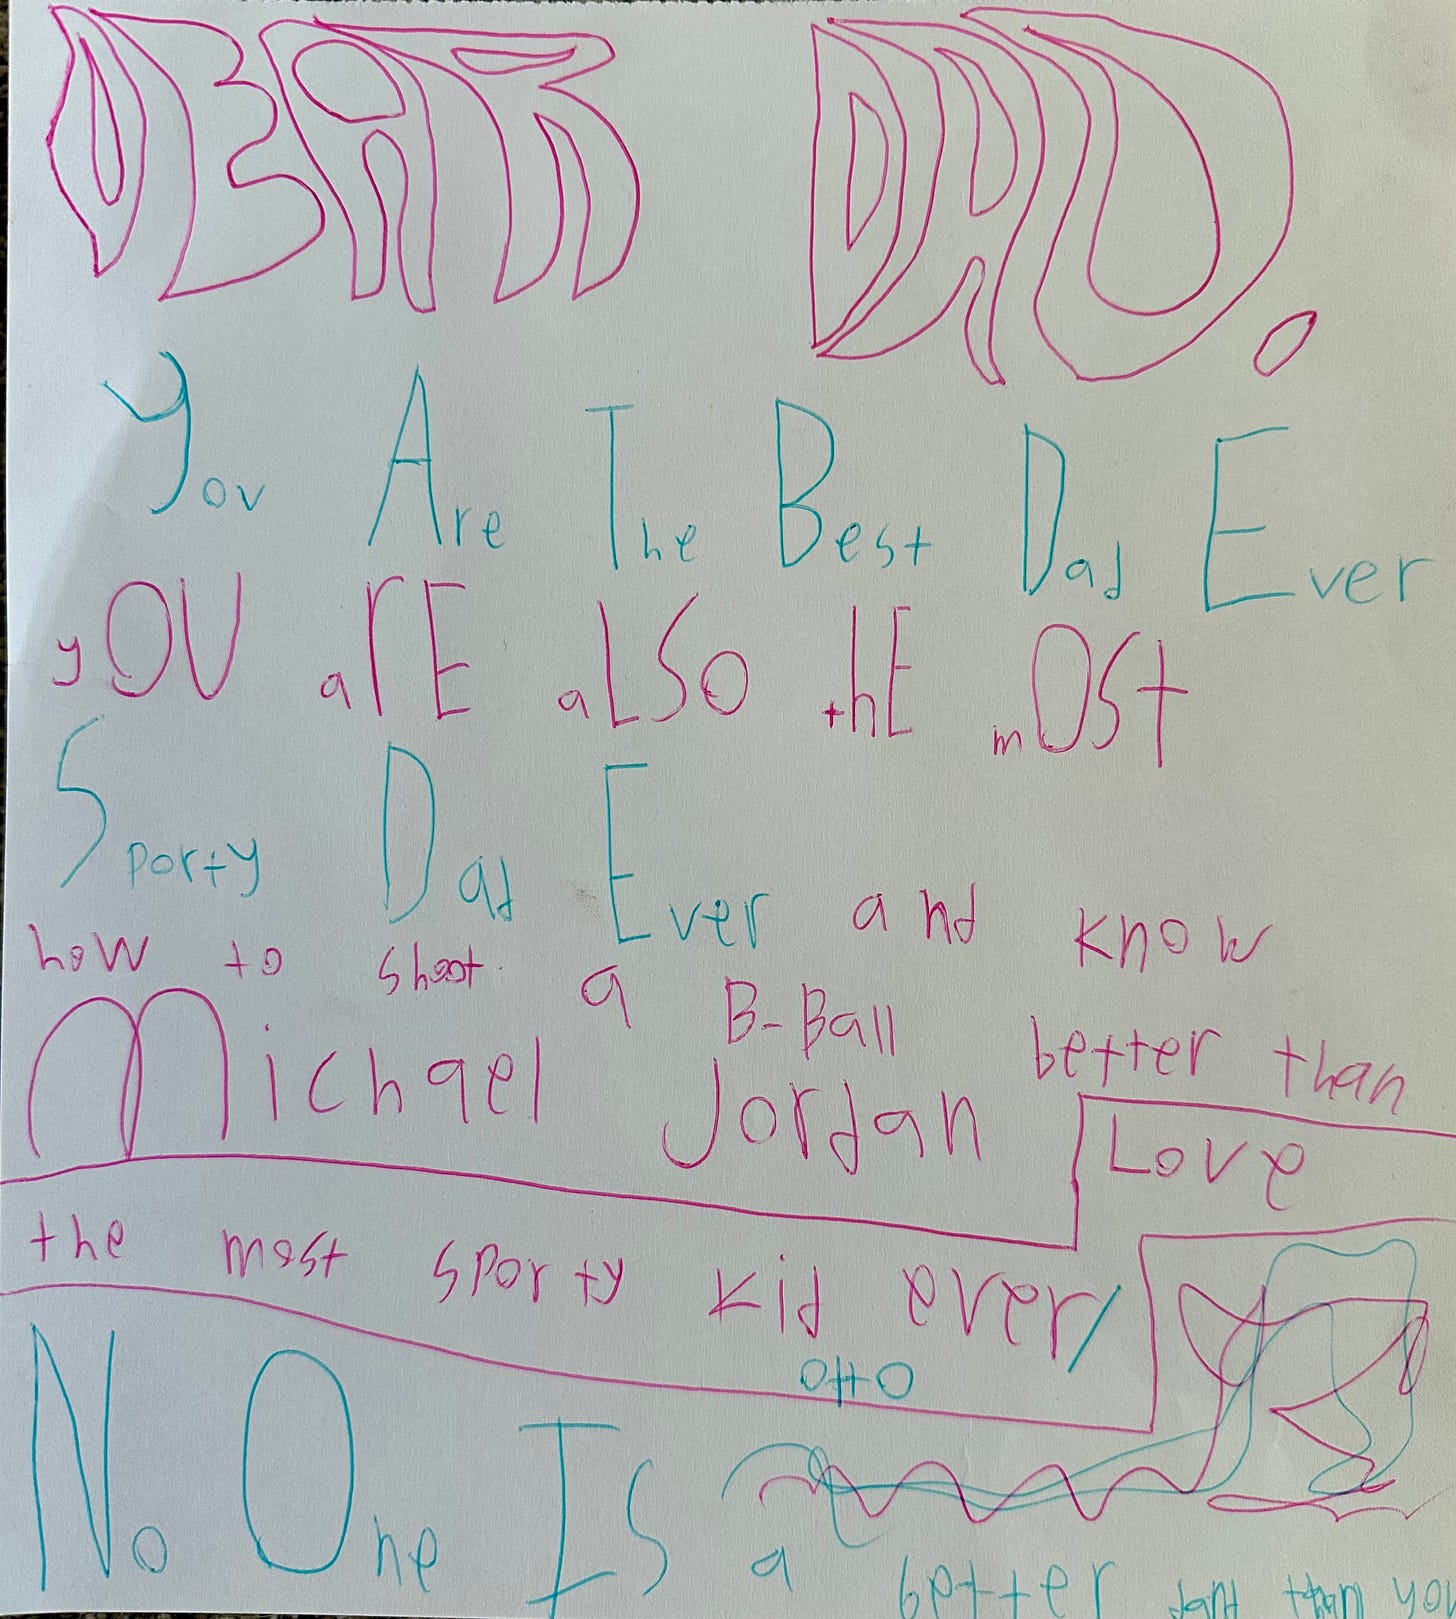 DEAR DAD.
You Are The Best Dad Ever
yOU arE aLSO thE mOSt
Sporty Dad Ever and know
how to shoot a B-Ball better than
Michael Jordan
Love
the most sporty kid ever/
otto
No One Is a better than you